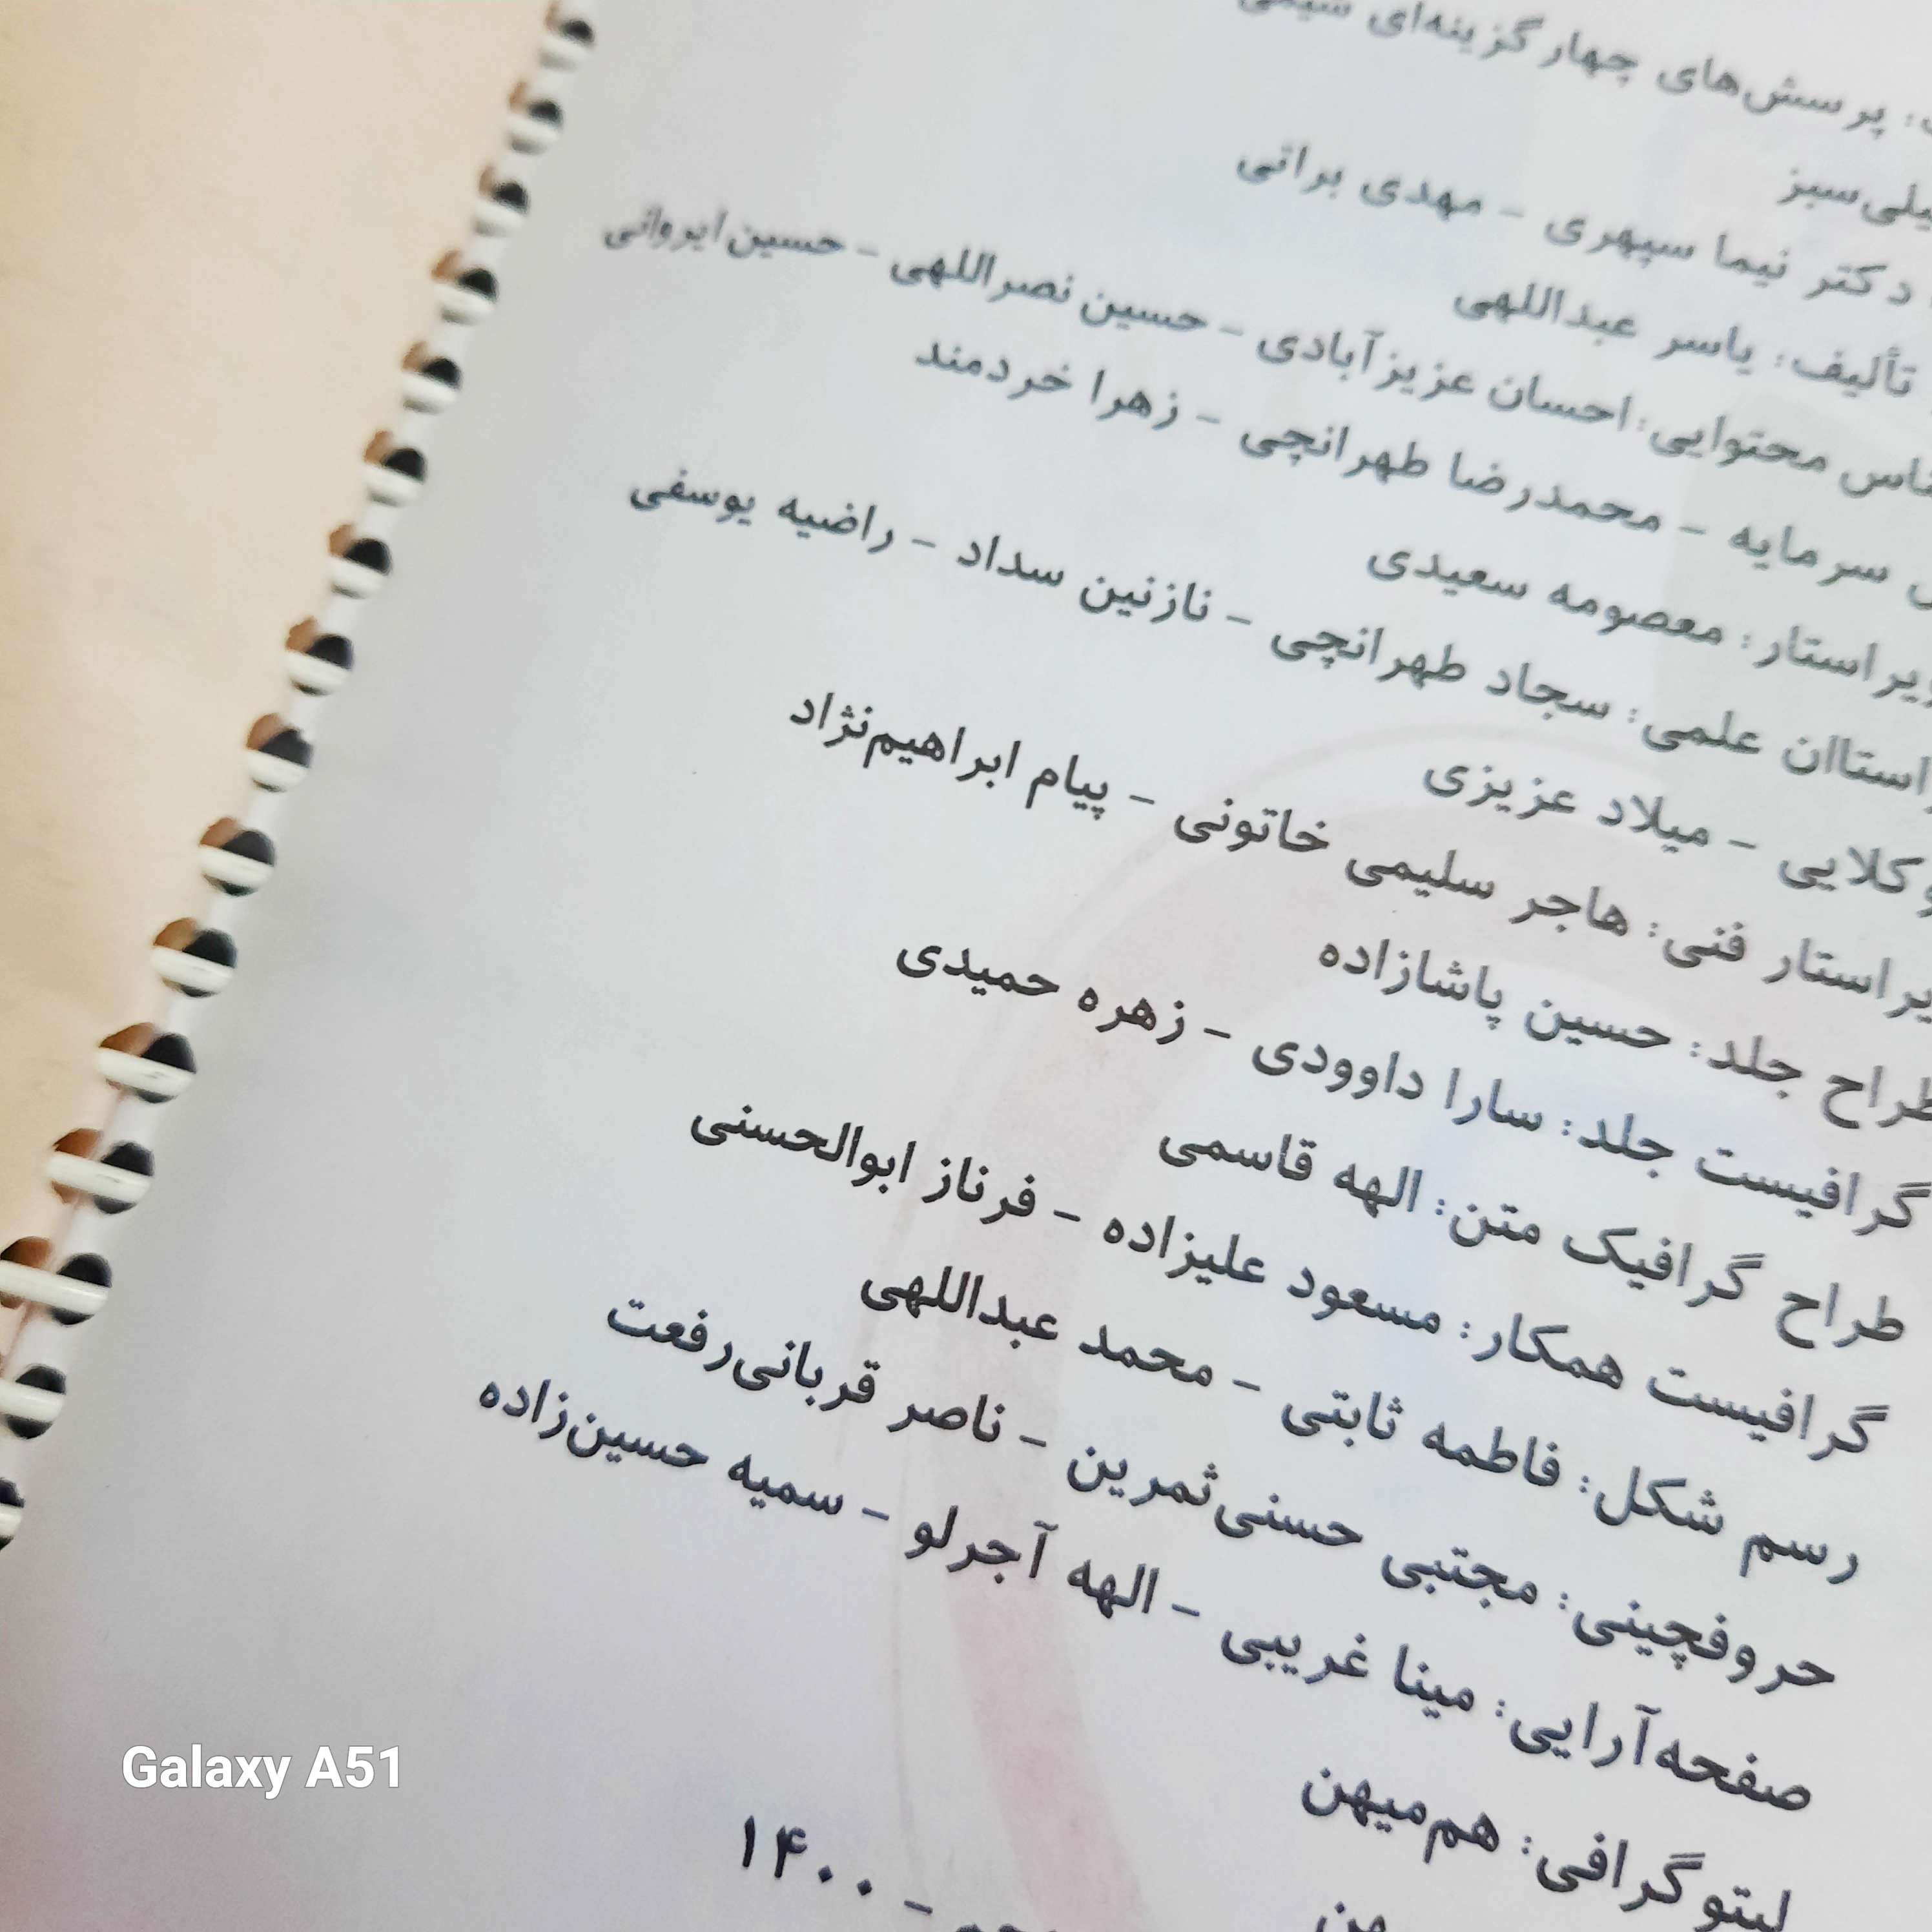 پرسش‌های چهارگزینه‌ای
دکتر نیما سپهری - مهدی براتی
تألیف: یاسر عبداللهی
محتوایی: احسان عزیزآبادی - حسین نصراللهی - حسین ایروانی
سرمایه - محمدرضا طهرانچی - زهرا خردمند
معصومه سعیدی
علمی: سجاد طهرانچی - نازنین سداد - راضیه یوسفی
میلاد عزیزی
فنی: هاجر سلیمی خاتونی - پیام ابراهیم‌نژاد
طراح جلد: حسین پاشازاده
گرافیست جلد: سارا داوودی - زهره حمیدی
طراح گرافیک متن: الهه قاسمی
گرافیست همکار: مسعود علیزاده - فرناز ابوالحسنی
رسم شکل: فاطمه ثابتی - محمد عبداللهی
حروفچینی: مجتبی حسنی‌ثمرین - ناصر قربانی‌رفعت
صفحه‌آرایی: مینا غریبی - الهه آجرلو - سمیه حسین‌زاده
لیتوگرافی: هم‌میهن
- ۱۴۰۰
Galaxy A51